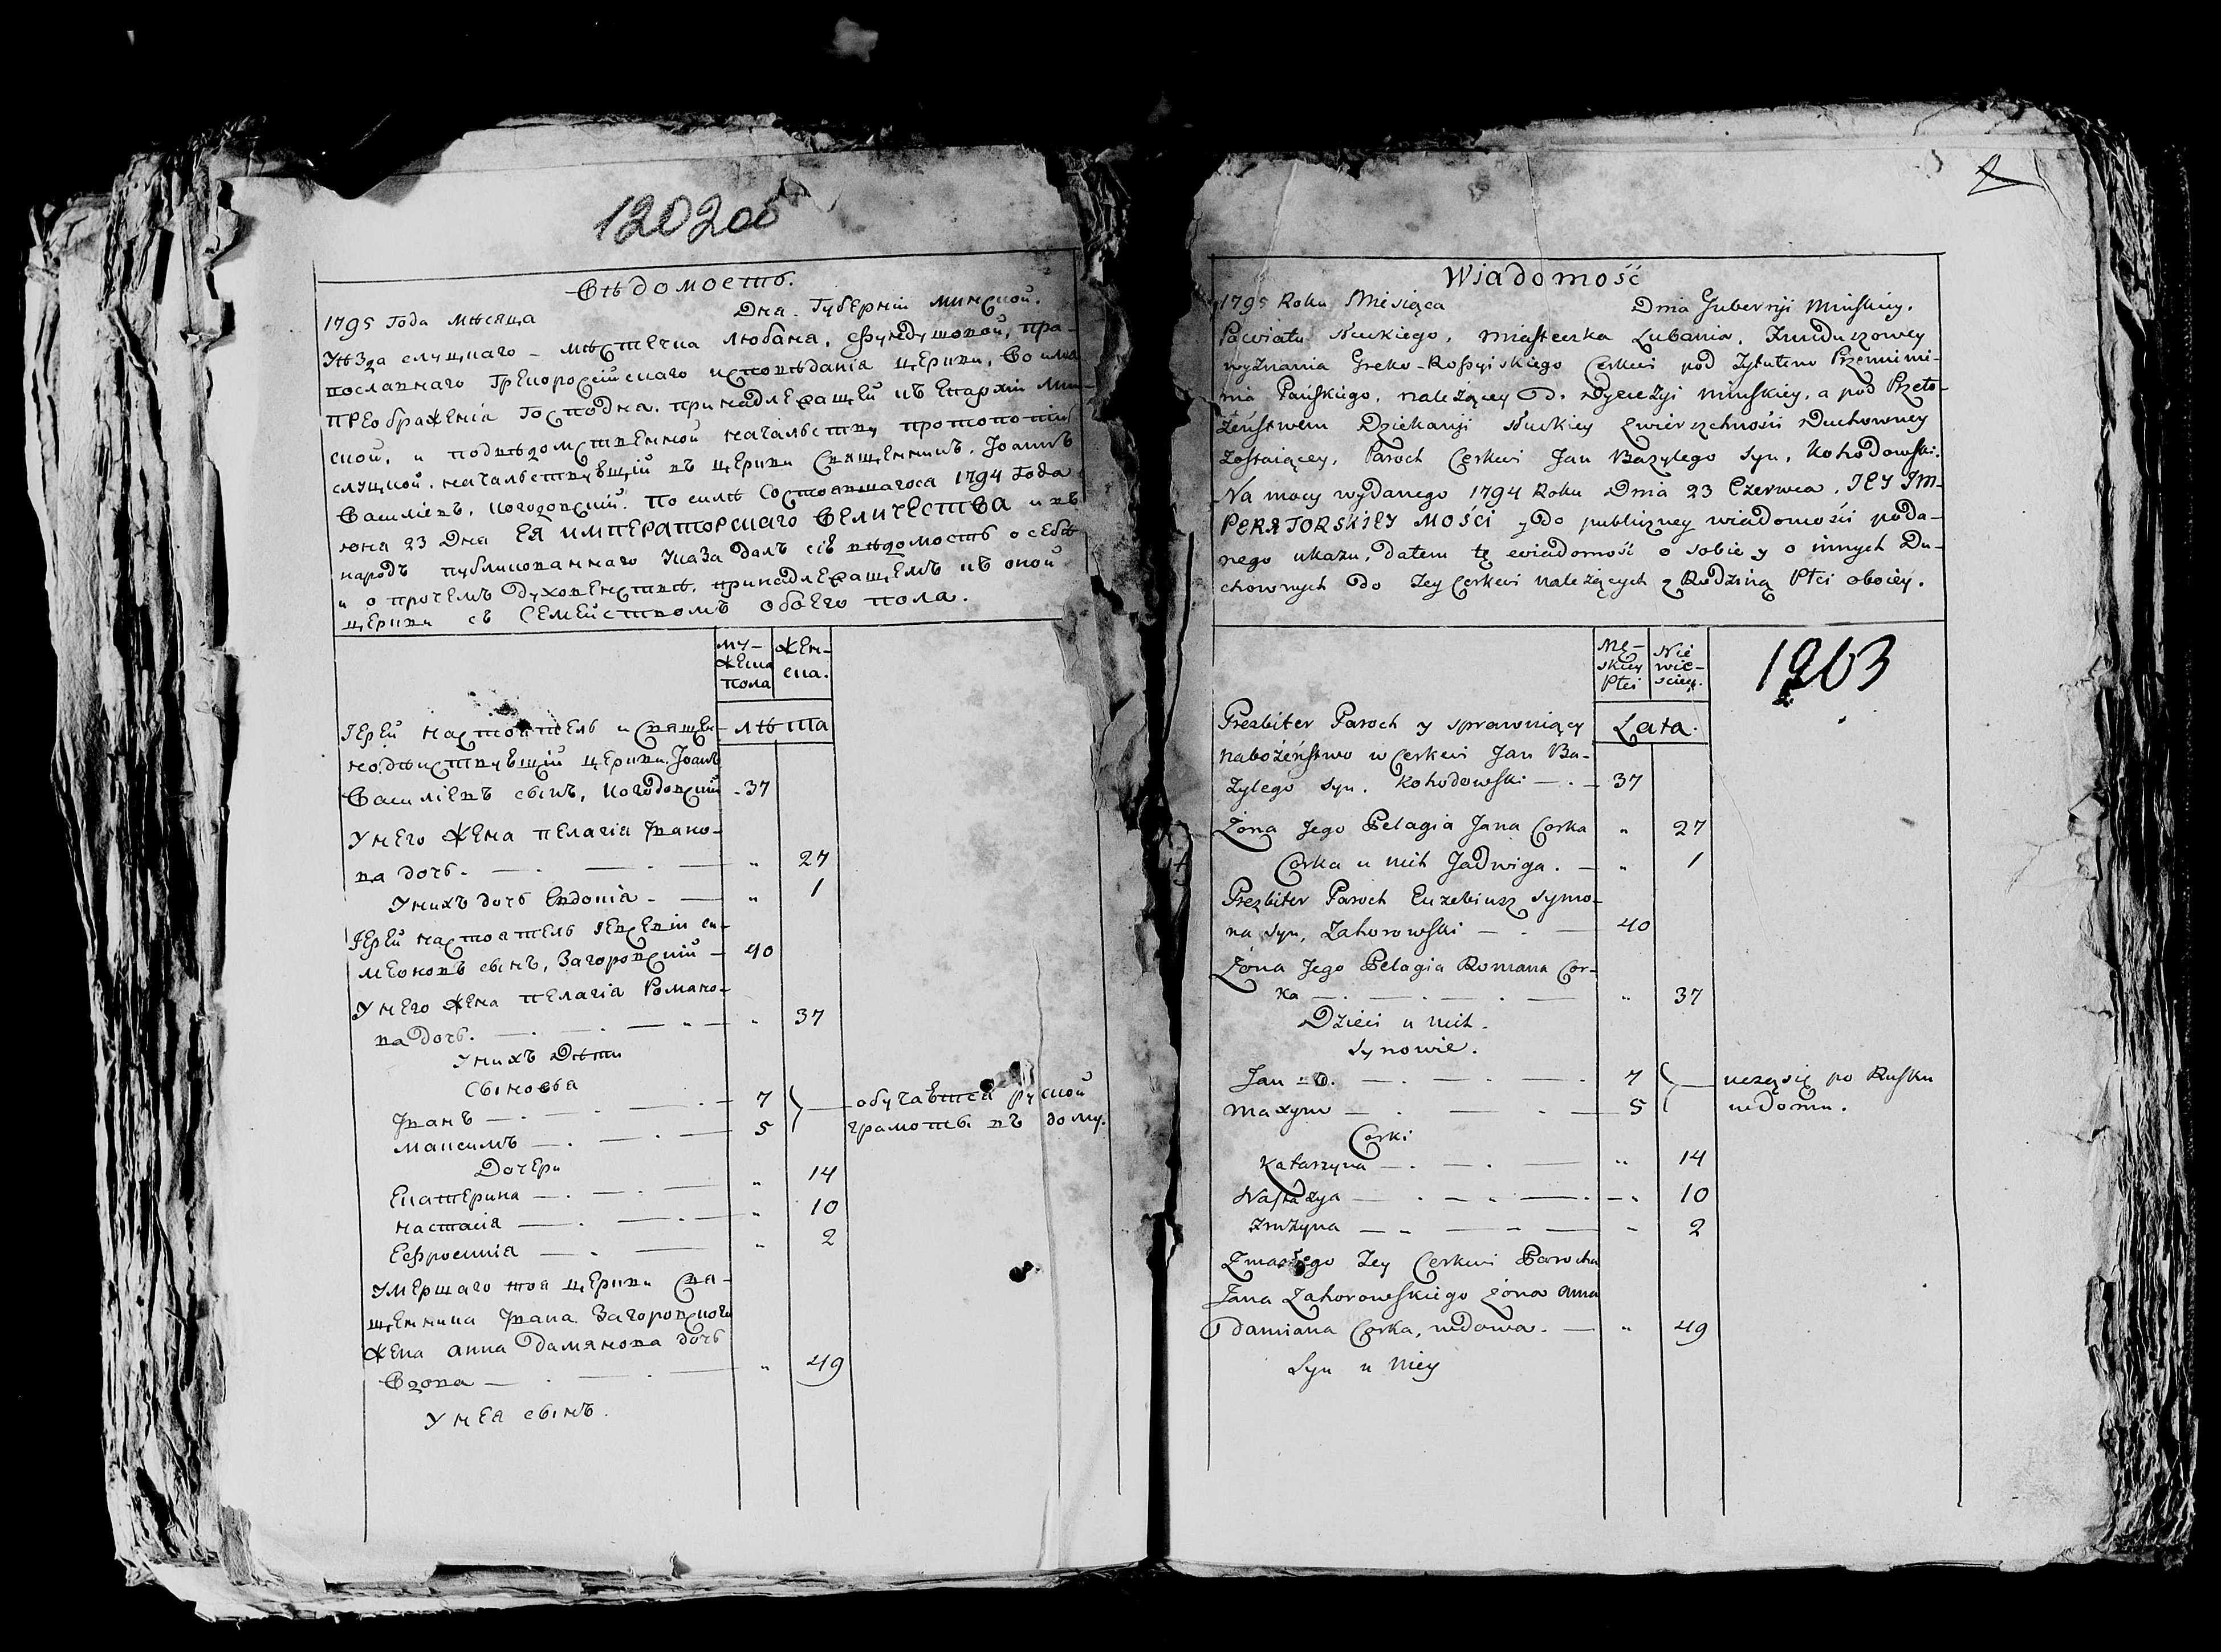 120200
Вѣдомость.
1795 Года мѣсяца Дна. Губерніи минской.
Уѣзда слуцкаго - мѣстечка любаня, Фундушовой, пра-
вославнаго Грекороссійскаго исповѣданія церкви, Во имя
преображенія Господна, принадлежащей къ Епархіи Мин-
ской, и подвѣдомственной начальству протопопіи
слуцкой. начальствующій въ церкви Священникъ, Іоаннъ
Василіевъ, когодовскій. По силѣ Состоявшагося 1794 Года
юня 23 Дна ЕЯ ИМПЕРАТОРСКАГО ВЕЛИЧЕСТВА и въ
народъ публикованнаго Указа далъ сію вѣдомость о себѣ
и о протчемъ Духовенствѣ, принадлежащемъ къ оной
церкви съ Семействомъ обоего пола.
му-
жеска
пола
жен-
ска.
лѣта
Іерей настоятель и Священ-
нодѣйствующій церкви Іоаннъ
Василіевъ сынъ, когодовскій - 37
У него жена пелагія Івано-
ва дочь. „ 27
У нихъ дочь Евдокія - „ 1
Іерей настоятель Іевсевій си-
меоновъ сынъ, Загоровскій - 40
У него жена пелагія Романо-
ва дочь. „ 37
У нихъ Дѣти
Сыновья
Іванъ 7 обучаются руской
максимъ 5 грамоты въ дому.
Дочери
Екатерина „ 14
настасія „ 10
Ефросинія „ 2
Умершаго тоя церкви Свя-
щенника Івана Загоровского
жена анна Дамянова дочь
Вдова „ 49
У нея сынъ.
2
Wiadomość
1795 Roku Miesiąca Dnia Gubernji Minskiey.
Powiatu Słuckiego, miasteczka Lubania, Funduszowey
wyznania Greko-Rossyiskiego Cerkwi pod Tytułem Przemini-
nia Pańskiego, należącey do Dyecezyi Minskiey, a pod Przeło-
żeństwem Dziekanji Słuckiey Zwierzchności Duchowney
Zostaiącey, Paroch Cerkwi Jan Bazylego Syn, Kohodowski.
Na mocy wydanego 1794 Roku Dnia 23 Czerwca, JEY IM-
PERATORSKIEY MOŚCI y do publiczney wiadomości poda-
nego ukazu, dałem tę wiadomość o sobie y o innych Du-
chownych do tey Cerkwi należących z Rodziną Płci oboiey.
Mę-
skiey
Płci
Nie
wie-
sciey.
1203
Lata.
Prezbiter Paroch y sprawuiący
nabożeństwo w Cerkwi Jan Ba-
zylego Syn. Kohodowski 37
Żona Jego Pelagia Jana Corka „ 27
Corka u nich Jadwiga. „ 1
Prezbiter Paroch Euzebiusz Symo-
na Syn, Zahorowski 40
Żona Jego Pelagia Romana Cor-
ka „ 37
Dzieci u nich.
Synowie.
Jan 7 uczą się po Rusku
Maxym 5 w domu.
Corki
Katarzyna „ 14
Nastazya „ 10
„ 2
Zmarłego tey Cerkwi Parocha
Jana Zahorowskiego żona Anna
Damiana Corka, wdowa. „ 49
Syn u niey